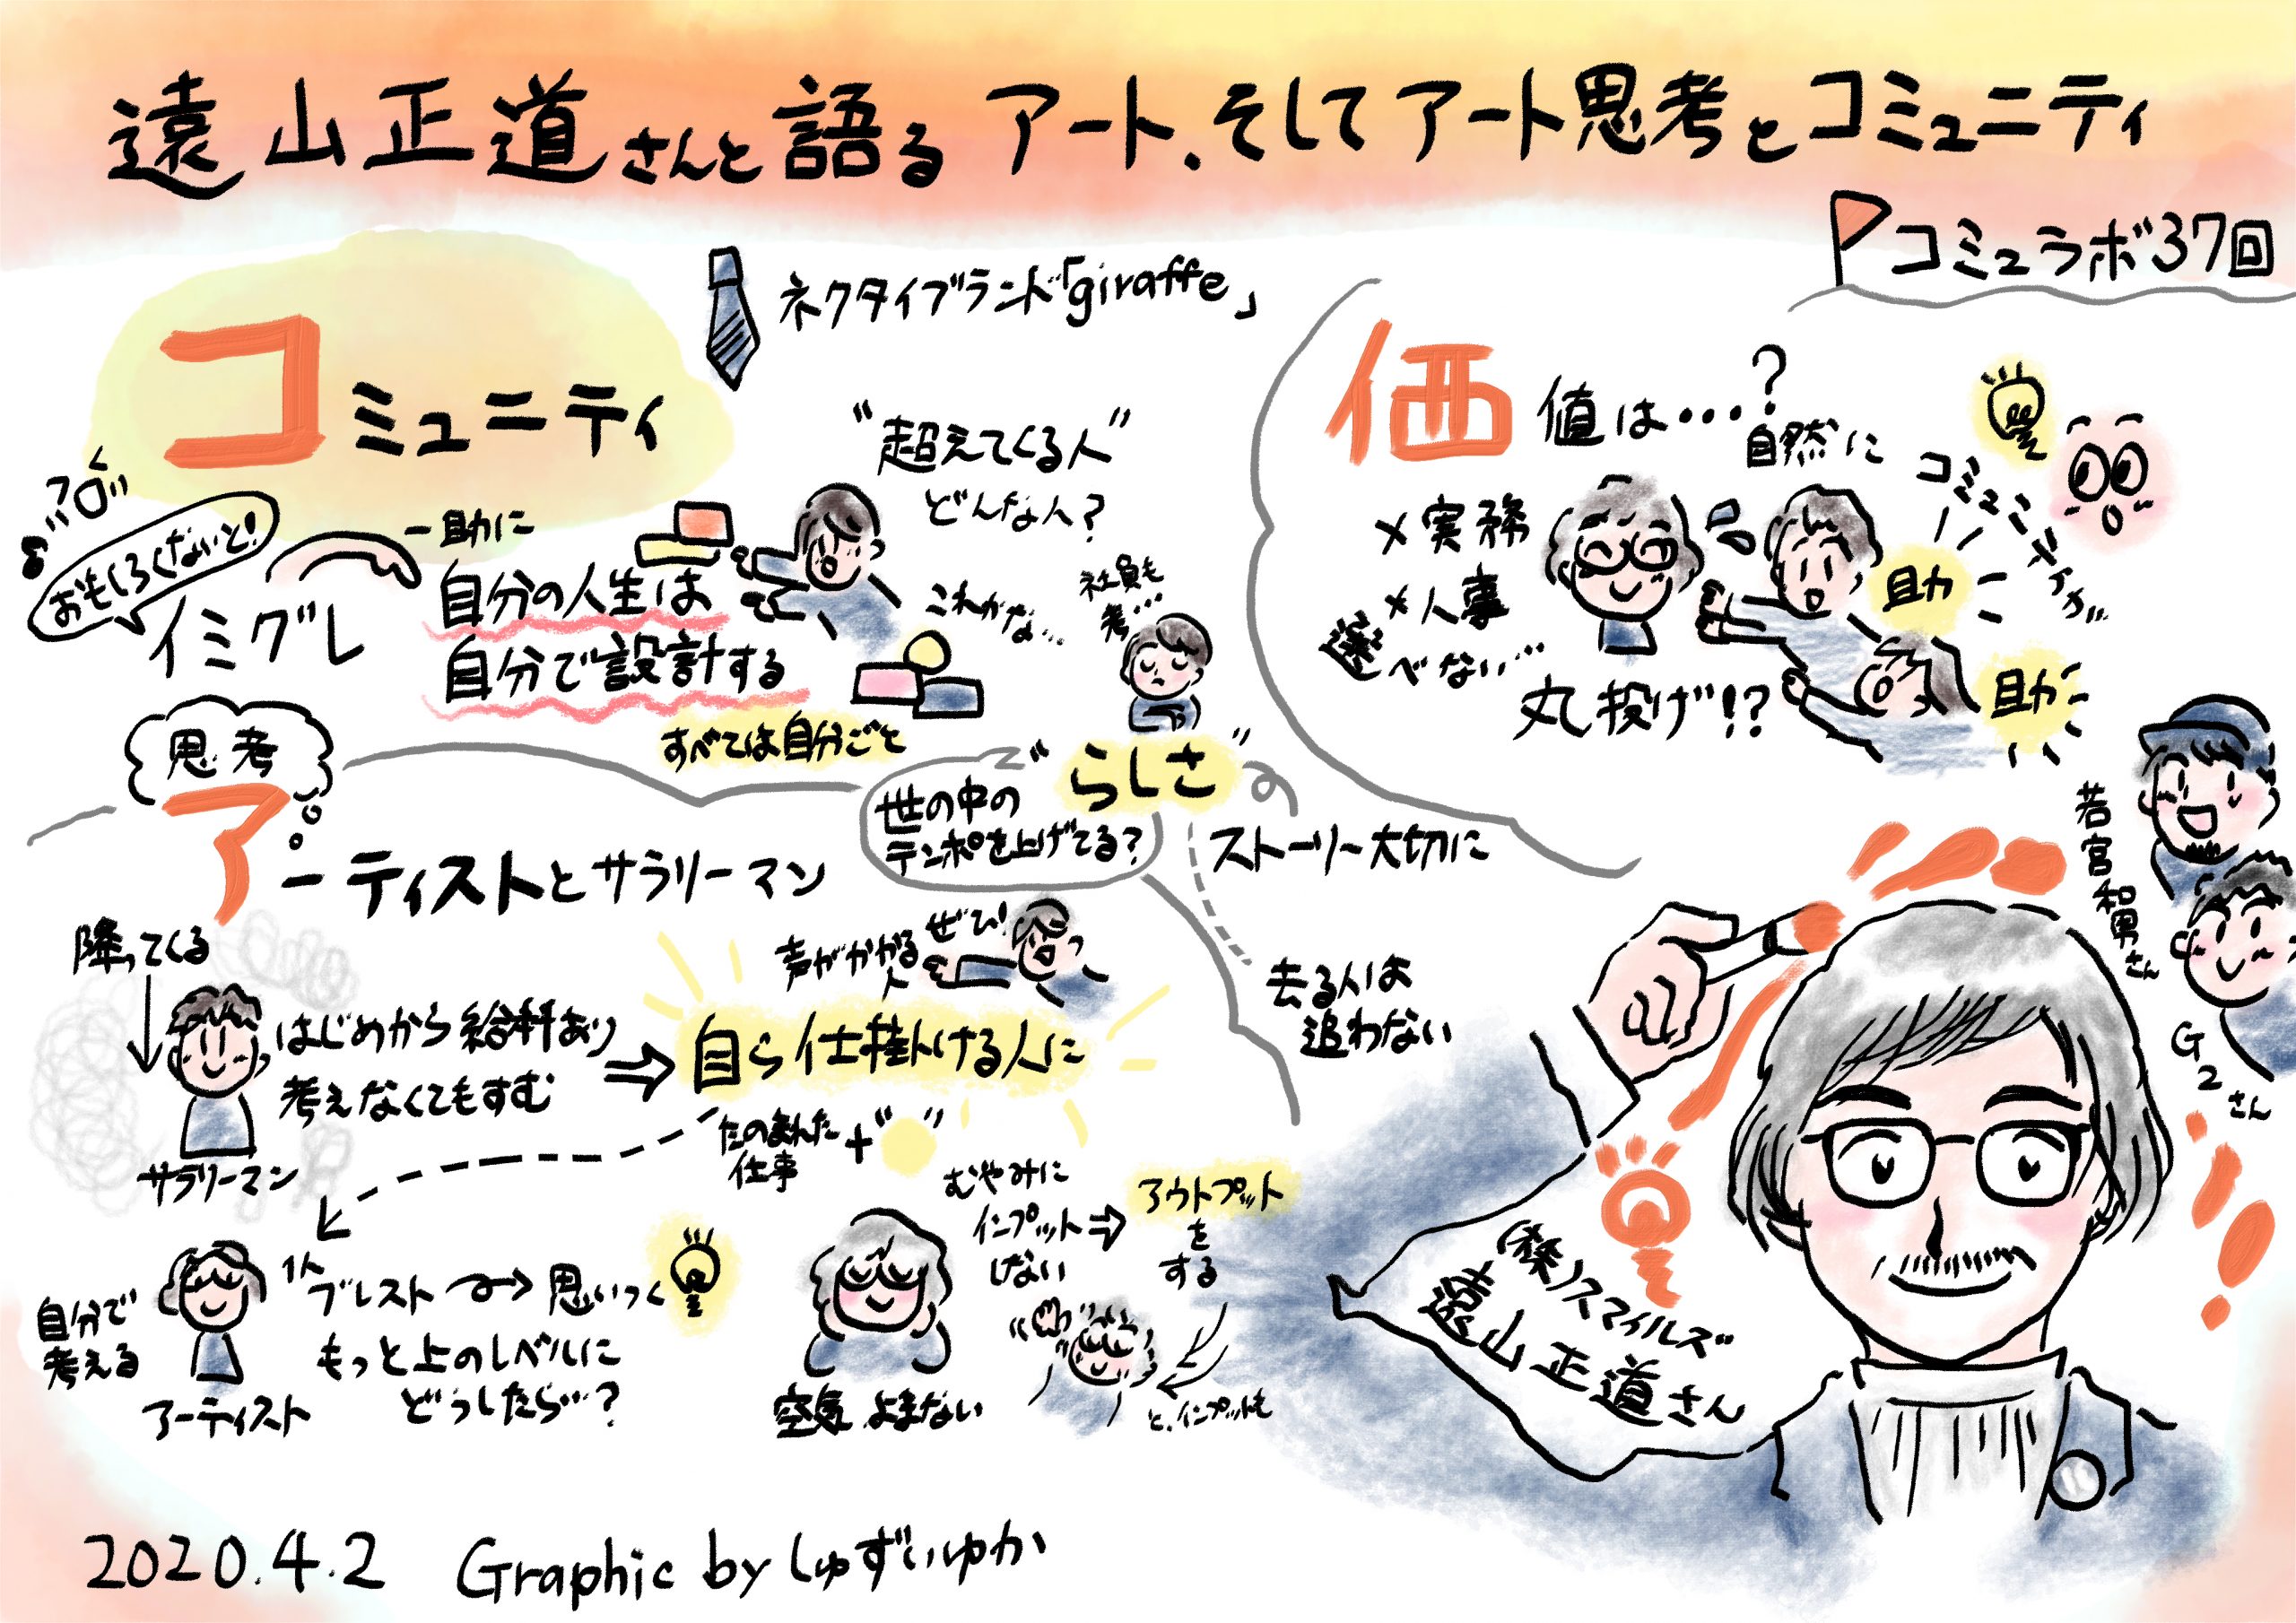 遠山正道さんと語る アート、そしてアート思考とコミュニティ
コミュラボ37回
コミュニティ
ネクタイブランド「giraffe」
"超えてくる人"
どんな人？
おもしろくないと!
イミグレ
一助に
自分の人生は
自分で設計する
すべては自分ごと
これかな…
社員も
考…
"らしさ"
世の中の
テンポを上げてる？
ストーリー大切に
去る人は
追わない
価値は…？
×実務
×人事
選べない…
丸投げ!?
自然に
コミュニティが…
助
助
思考
アーティストとサラリーマン
降ってくる
はじめから給料あり
考えなくてもすむ
サラリーマン
声がかかる
人
ぜひ!
自ら仕掛ける人に
たのまれた
仕事
+" "
自分で
考える
アーティスト
1人
ブレスト
思いつく
もっと上のレベルに
どうしたら…？
空気よまない
むやみに
インプット
しない
アウトプット
を
する
と、インプットも
若宮和男さん
G2さん
(株)スマイルズ
遠山正道さん
2020.4.2 Graphic by しゅずいゆか